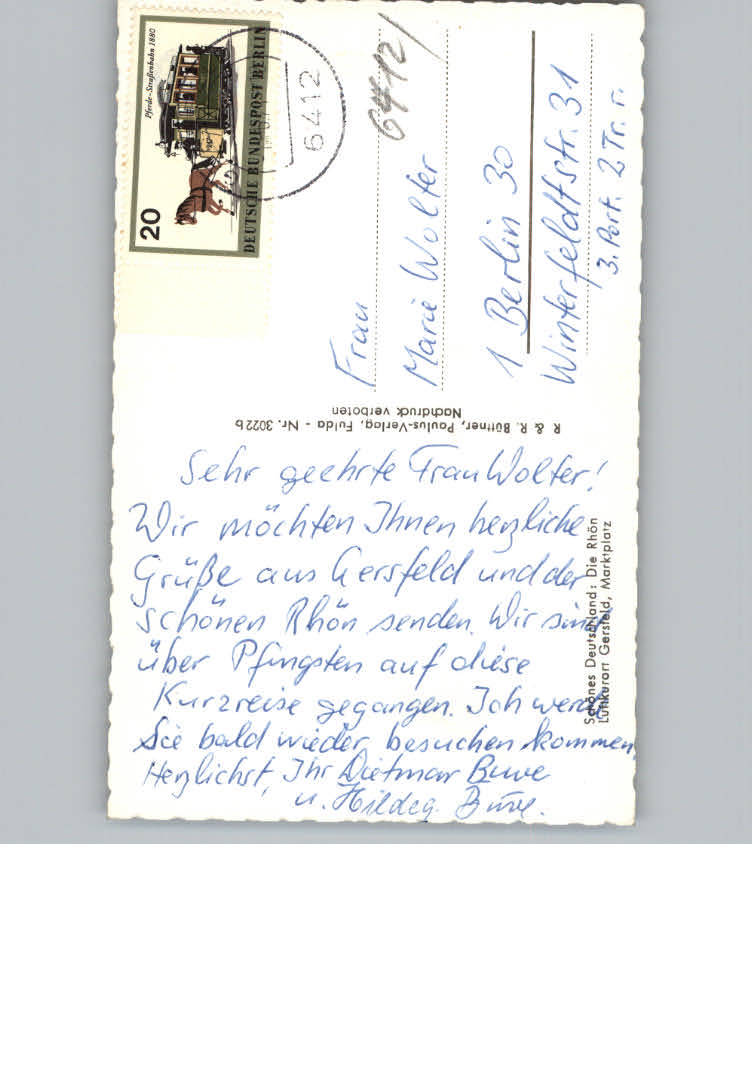 Pferde-Straßenbahn 1880
20
DEUTSCHE BUNDESPOST BERLIN
6412
6412
Frau
Marie Wolter
1 Berlin 30
Winterfeldtstr. 31
3. Port. 2 Tr. r.
R. & R. Büttner, Paulus-Verlag, Fulda - Nr. 3022 b
Nachdruck verboten
Sehr geehrte Frau Wolter!
Wir möchten Ihnen herzliche
Grüße aus Gersfeld und der
schönen Rhön senden. Wir sind
über Pfingsten auf diese
Kurzreise gegangen. Ich werde
Sie bald wieder besuchen kommen.
Herzlichst, Ihr Dietmar
u. Hildeg.
Schönes Deutschland: Die Rhön
Luftkurort Gersfeld, Marktplatz